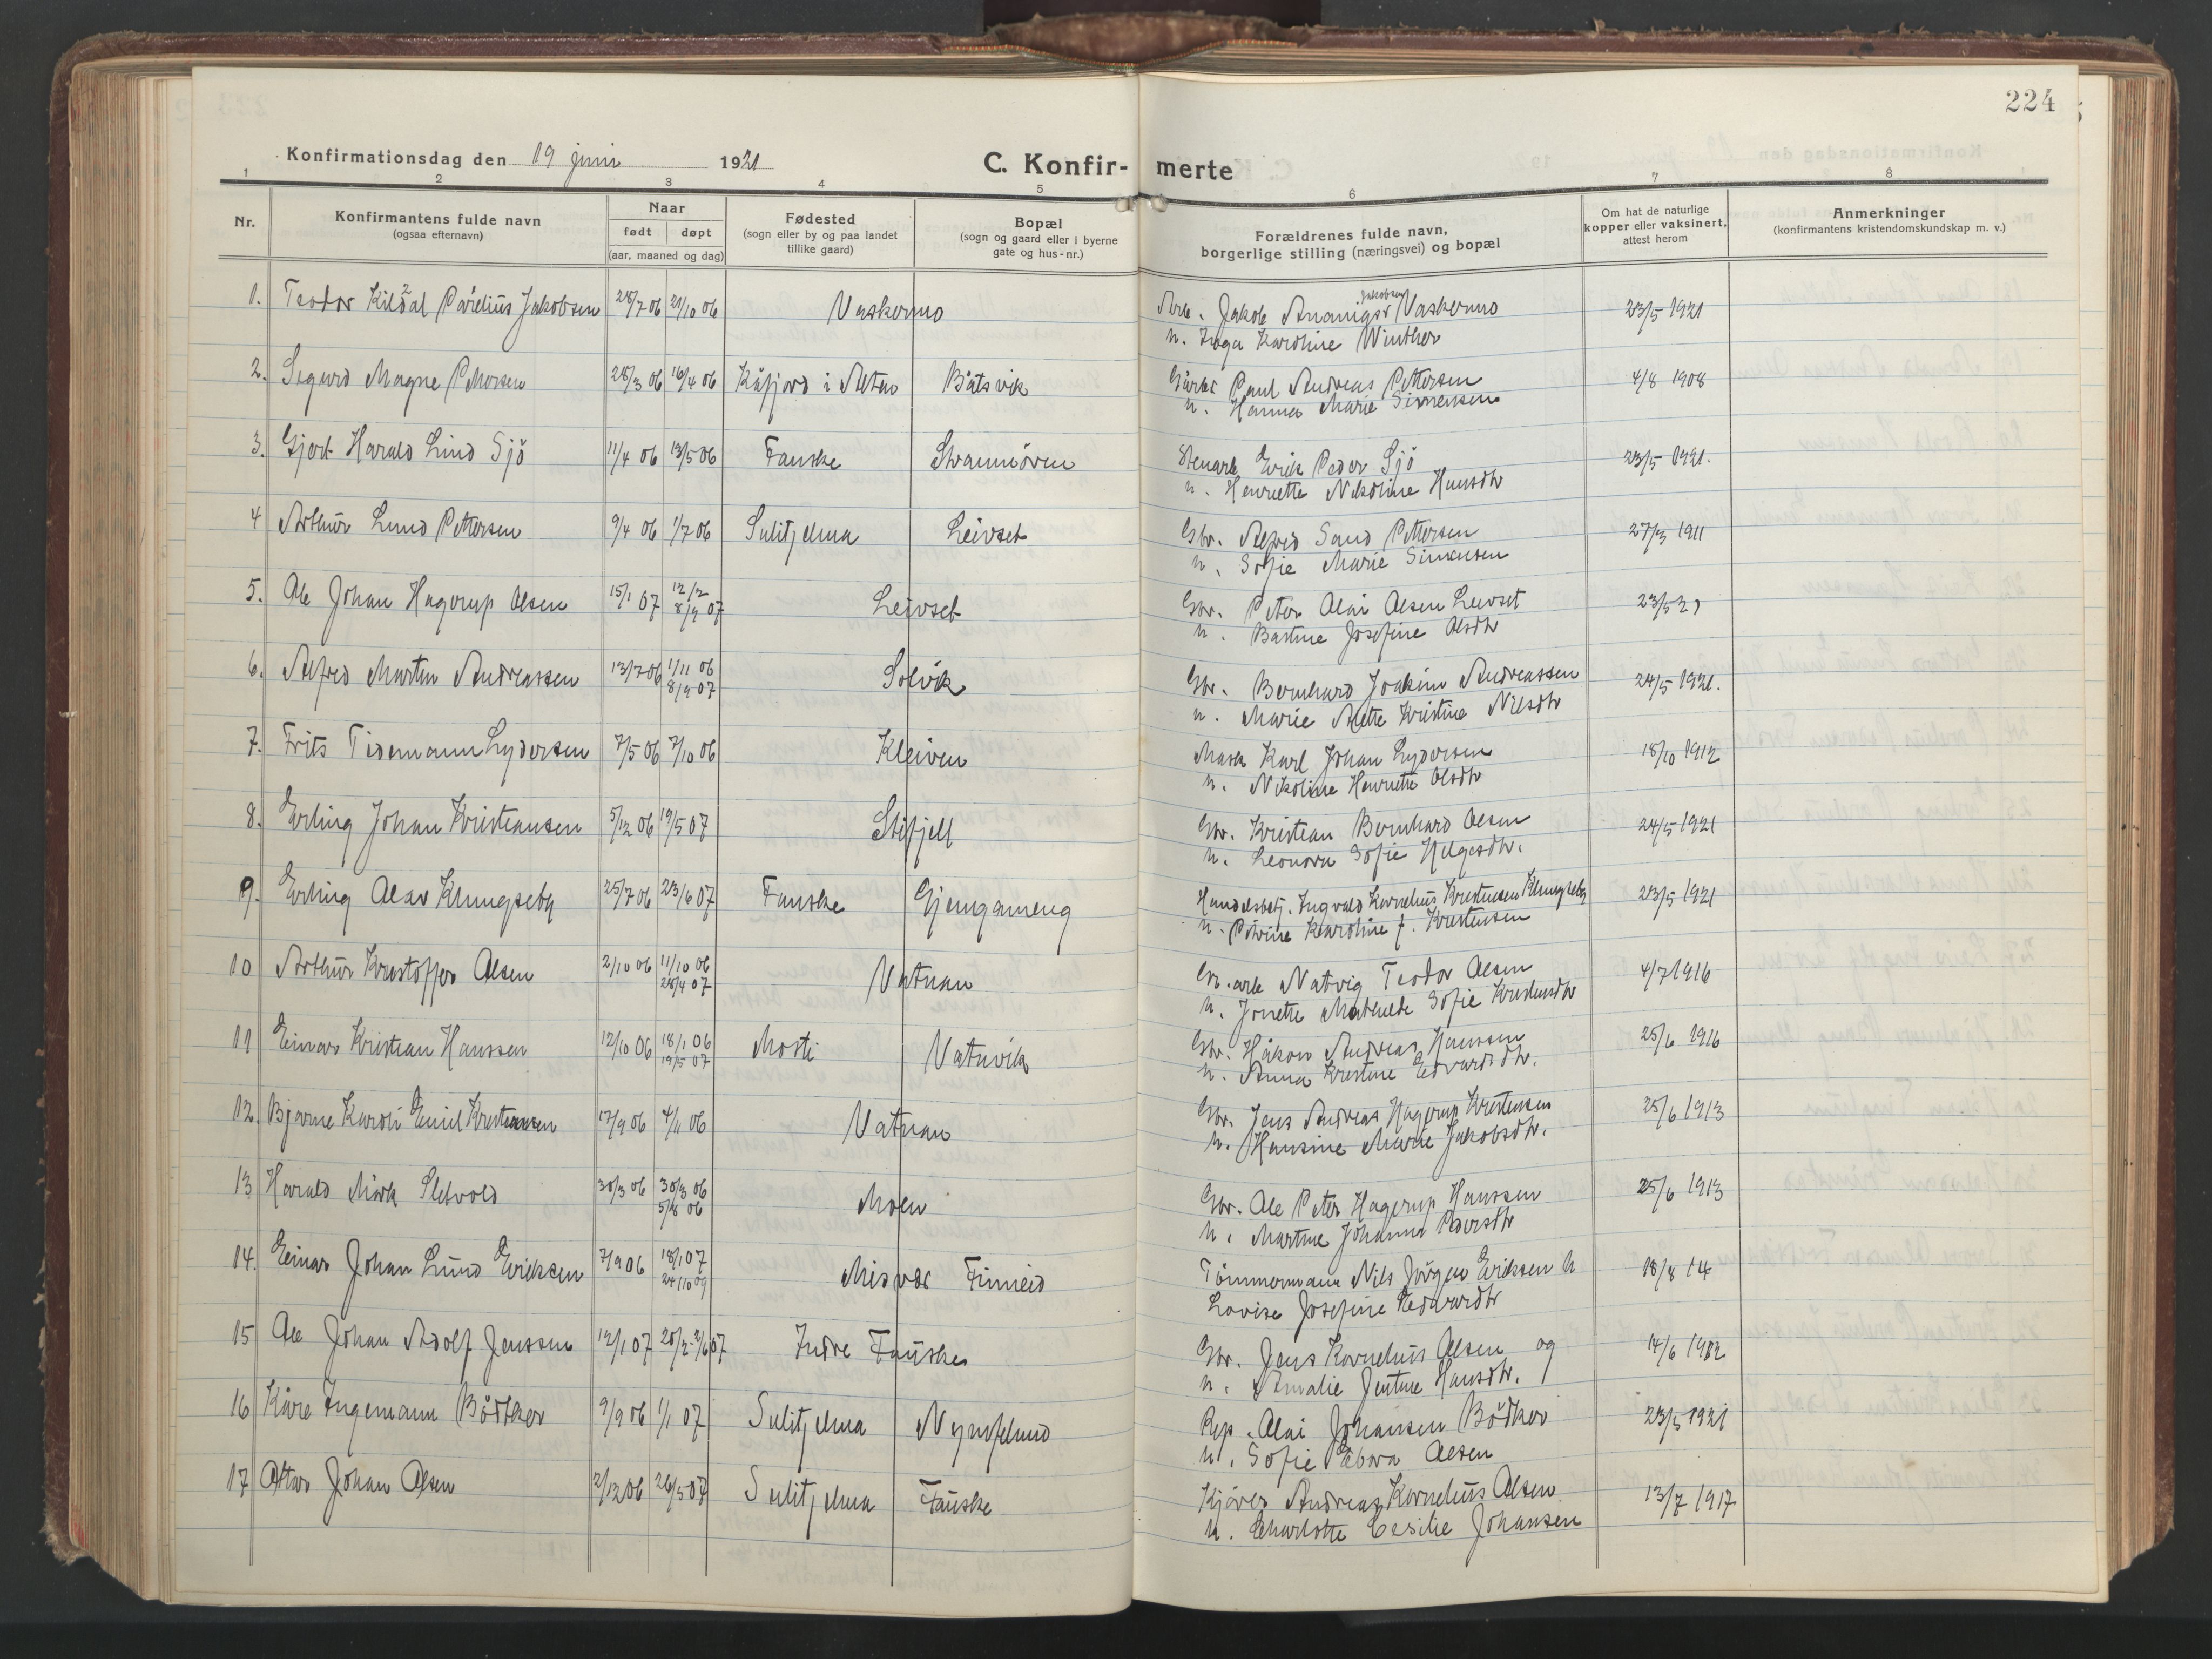 224
Konfirmationsdag den 19 juni 1921
C. Konfir- merte
1 2 3 4 5 6 7 8
Nr.
Konfirmantens fulde navn
(ogsaa efternavn)
Naar
født døpt
(aar, maaned og dag)
Fødested
(sogn eller by og paa landet
tillike gaard)
Bopæl
(sogn og gaard eller i byerne
gate og hus-nr.)
Forældrenes fulde navn,
borgerlige stilling (næringsvei) og bopæl
Om hat de naturlige
kopper eller vaksinert,
attest herom
Anmerkninger
(konfirmantens kristendomskundskap m. v.)
1. Teodor Kildal Parelius Jakobsen 28/7 06 21/10 06 Vaskermo Arb. Jakob Ananias Jakobsen Vaskermo 23/5 1921
h. Inga Karoline Winther
2. Sigurd Magne Pettersen 28/3 06 16/4 06 Kåfjord i Alten Båtsvik Gårbr Paul Andreas Pettersen 4/8 1908
h. Hanna Marie Simensen
3. Gjert Harald Lind Sjö 11/4 06 13/5 06 Fauske Strammören Stenarb Erik Peder Sjö 23/5 1921.
h. Henriette Nikoline Hansdtr
4 Arthur Lund Pettersen 9/4 06 1/7 06 Sulitjelma Leivset Gbr. Alfred Sand Pettersen 27/3 1911
h. Sofie Marie Simensen
5. Ole Johan Hagerup Olsen 15/1 07 12/2 8/9 07 Leivset Gbr. Peter Olai Olsen Leivset 23/5 21
h. Bastine Josefine Olsdtr
6. Alfred Martin Andreassen 13/7 06 1/11 06 8/9 07 Solvik Gbr. Bernhard Joakim Andreassen 24/5 1921.
h. Marie Anette Kristine Nilsdtr
7. Frits Tidemann Lydersen 7/5 06 7/10 06 Kleiven Mask Karl Johan Lydersen 18/10 1912
h. Nikoline Henriette Olsdtr
8. Erling Johan Kristiansen 5/12 06 19/5 07 Stifjell Gbr. Kristian Bernhard Olsen 24/5 1921
h. Leonora Sofie Helgesdtr.
9. Erling Olav Klungseby 25/7 06 23/6 07 Fauske Gjengameng Handelsbetj. Ingvald Kornelius Kristensen Klungseby 23/5 1921
h. Petrine Karoline f. Kristensen
10 Arthur Kristoffer Olsen 2/10 06 11/10 06 28/4 07 Vatnan Gr. arb Natvig Teodor Olsen 4/7 1916
h. Jonette Mathilde Sofie Kristensdtr
11 Einar Kristian Hanssen 12/10 06 18/1 06 19/5 07 Mosti Vatnvik Gbr. Håkon Andreas Hanssen 25/6 1916
h. Anna Kristine Edvardsdtr.
12. Bjarne Karoli Emil Kristensen 17/9 06 4/11 06 Vatnan Gbr. Jens Andreas Hagerup Kristensen 25/6 1913
h. Hansine Marie Jakobsdtr.
13 Harald Mörk Sletvold 30/3 06 30/3 06 5/8 06 Moen Gbr. Ole Peter Hagerup Hanssen 25/6 1913
h. Martine Johanna Pedersdtr
14. Einar Johan Lund Eriksen 7/9 06 18/1 07 24/10 09 Misvær Finneid Tömmermann Nils Jörgen Eriksen h 18/8 14
Lovise Josefine Edvardsdtr
15 Ole Johan Adolf Jenssen 12/1 07 20/2-2/6 07 Indre Fauske Gbr. Jens Kornelius Olsen og 14/6 1912
h. Amalie Jentine Hansdtr.
16 Kåre Ingemann Bödtker 9/9 06 1/1 07 Sulitjelma Nymfelund Rep. Olai Johansen Bödtker 23/5 1921
h. Sofie Ebba Olsen
17 Ottar Johan Olsen 2/12 06 26/5 07 Sulitjelma Fauske Kjörer Andreas Kornelius Olsen 13/7 1917
h. Charlotte Cesilie Johansen